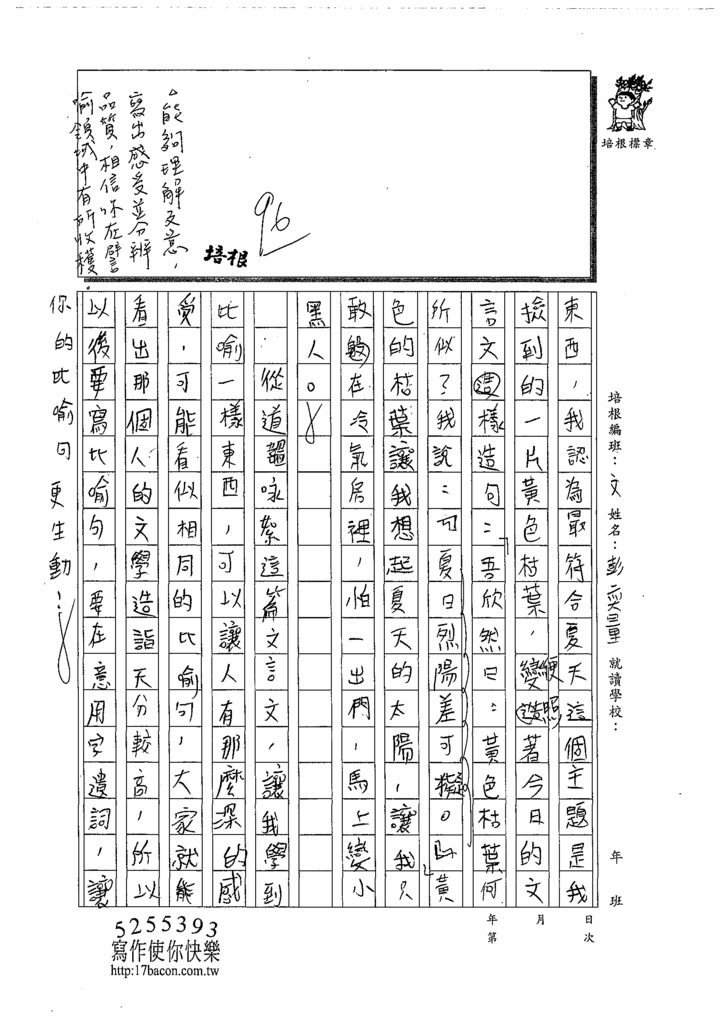 培根標章
培根編班：文 姓名：彭奕量 就讀學校： 年 班
東西，我認為最符合夏天這個主題是我
撿到的一片黃色枯葉，變造著今日的文
便 照
言文這樣造句：「吾欣然曰：黃色枯葉何
所似？我說：『夏日烈陽差可擬。』」黃
色的枯葉讓我想起夏天的太陽，讓我只
敢躲在冷氣房裡，怕一出門，馬上變小
黑人。
從道韞咏絮這篇文言文，讓我學到
比喻一樣東西，可以讓人有那麼深的感
受，可能看似相同的比喻句，大家就能
看出那個人的文學造詣天分較高，所以
以後要寫比喻句，要在意用字遣詞，讓
你的比喻句更生動！
能夠理解文意，
寫出感受並分辨
品質，相信你在譬
喻領域中有所收穫。
培根
96
年 月 日
第 次
5255393
寫作使你快樂
http:17bacon.com.tw